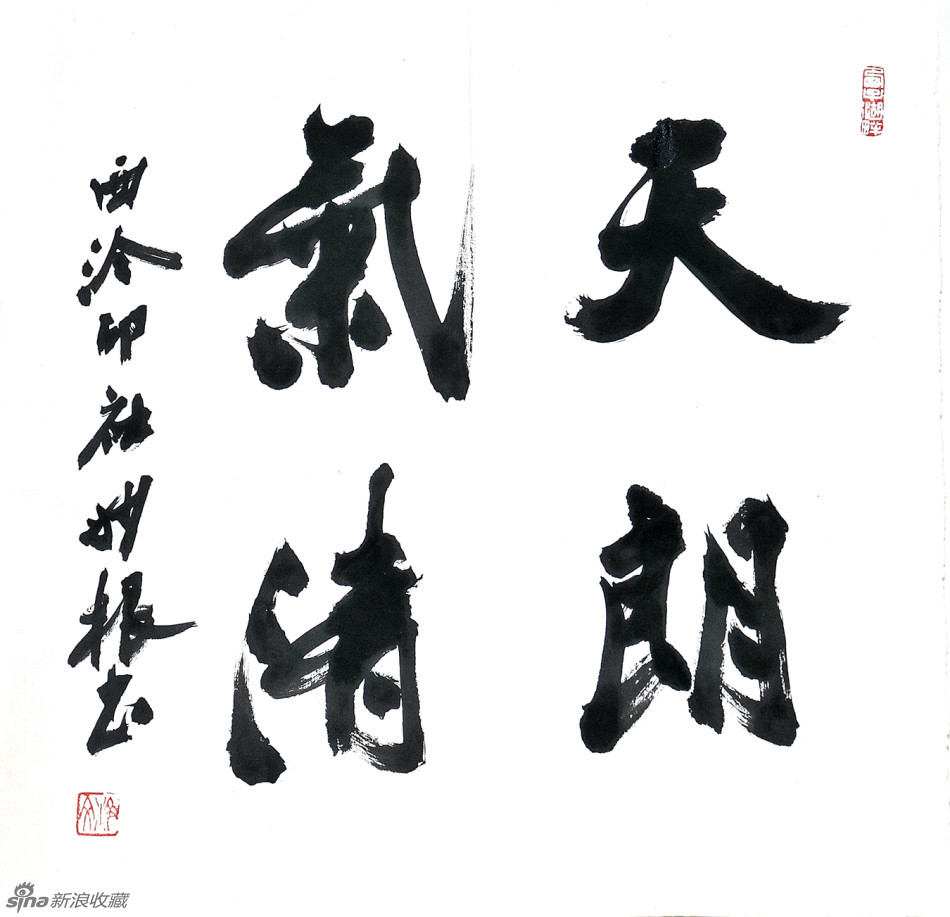 天朗
氣清
西泠印社妙根书
sina新浪收藏